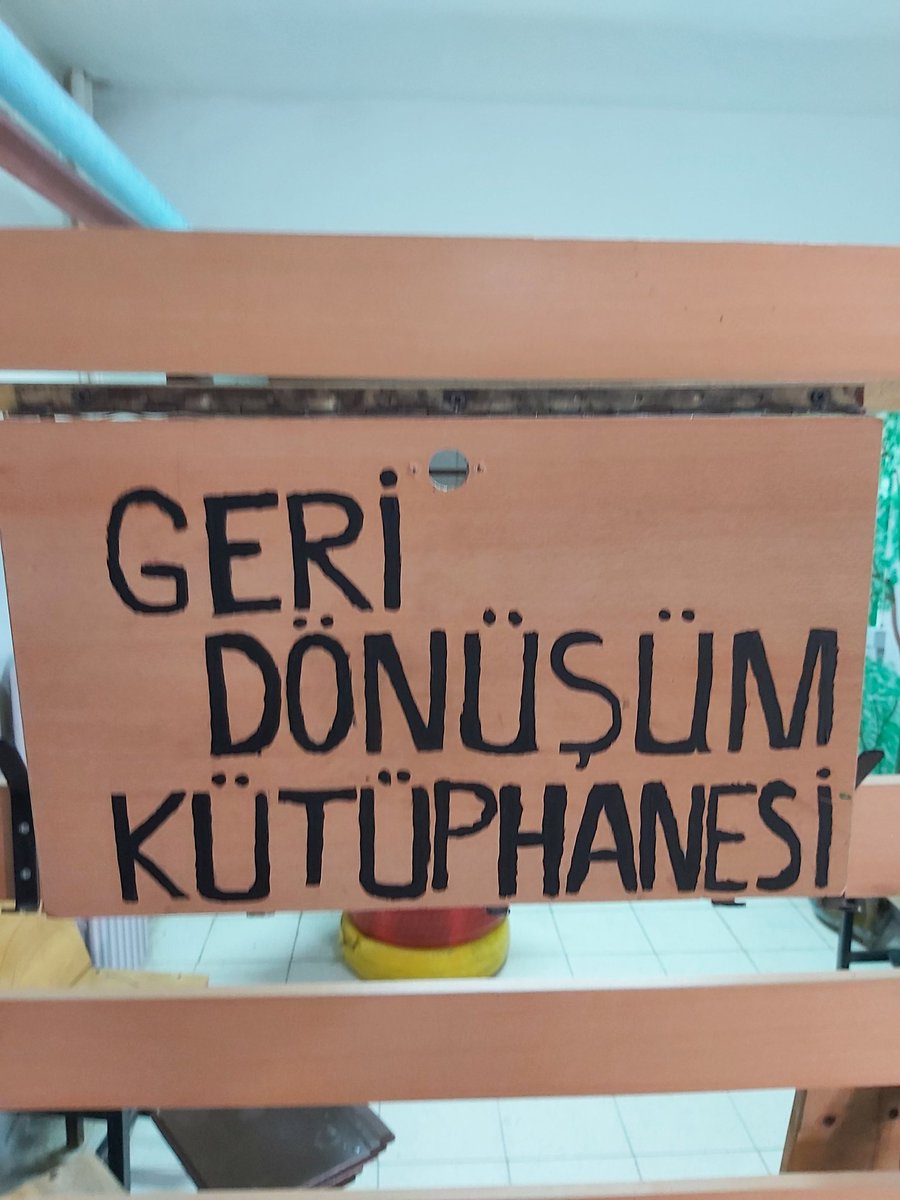 GERİ
DÖNÜŞÜM
KÜTÜPHANESİ